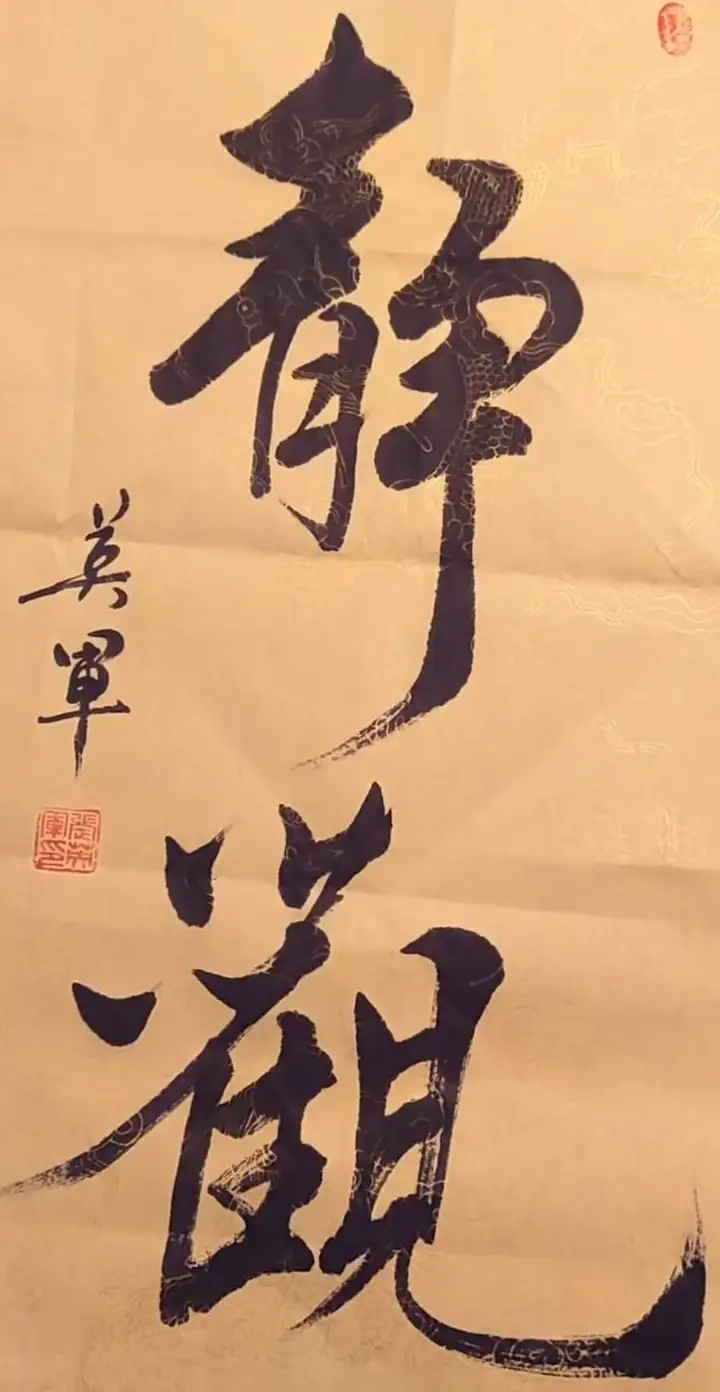 靜觀
英軍